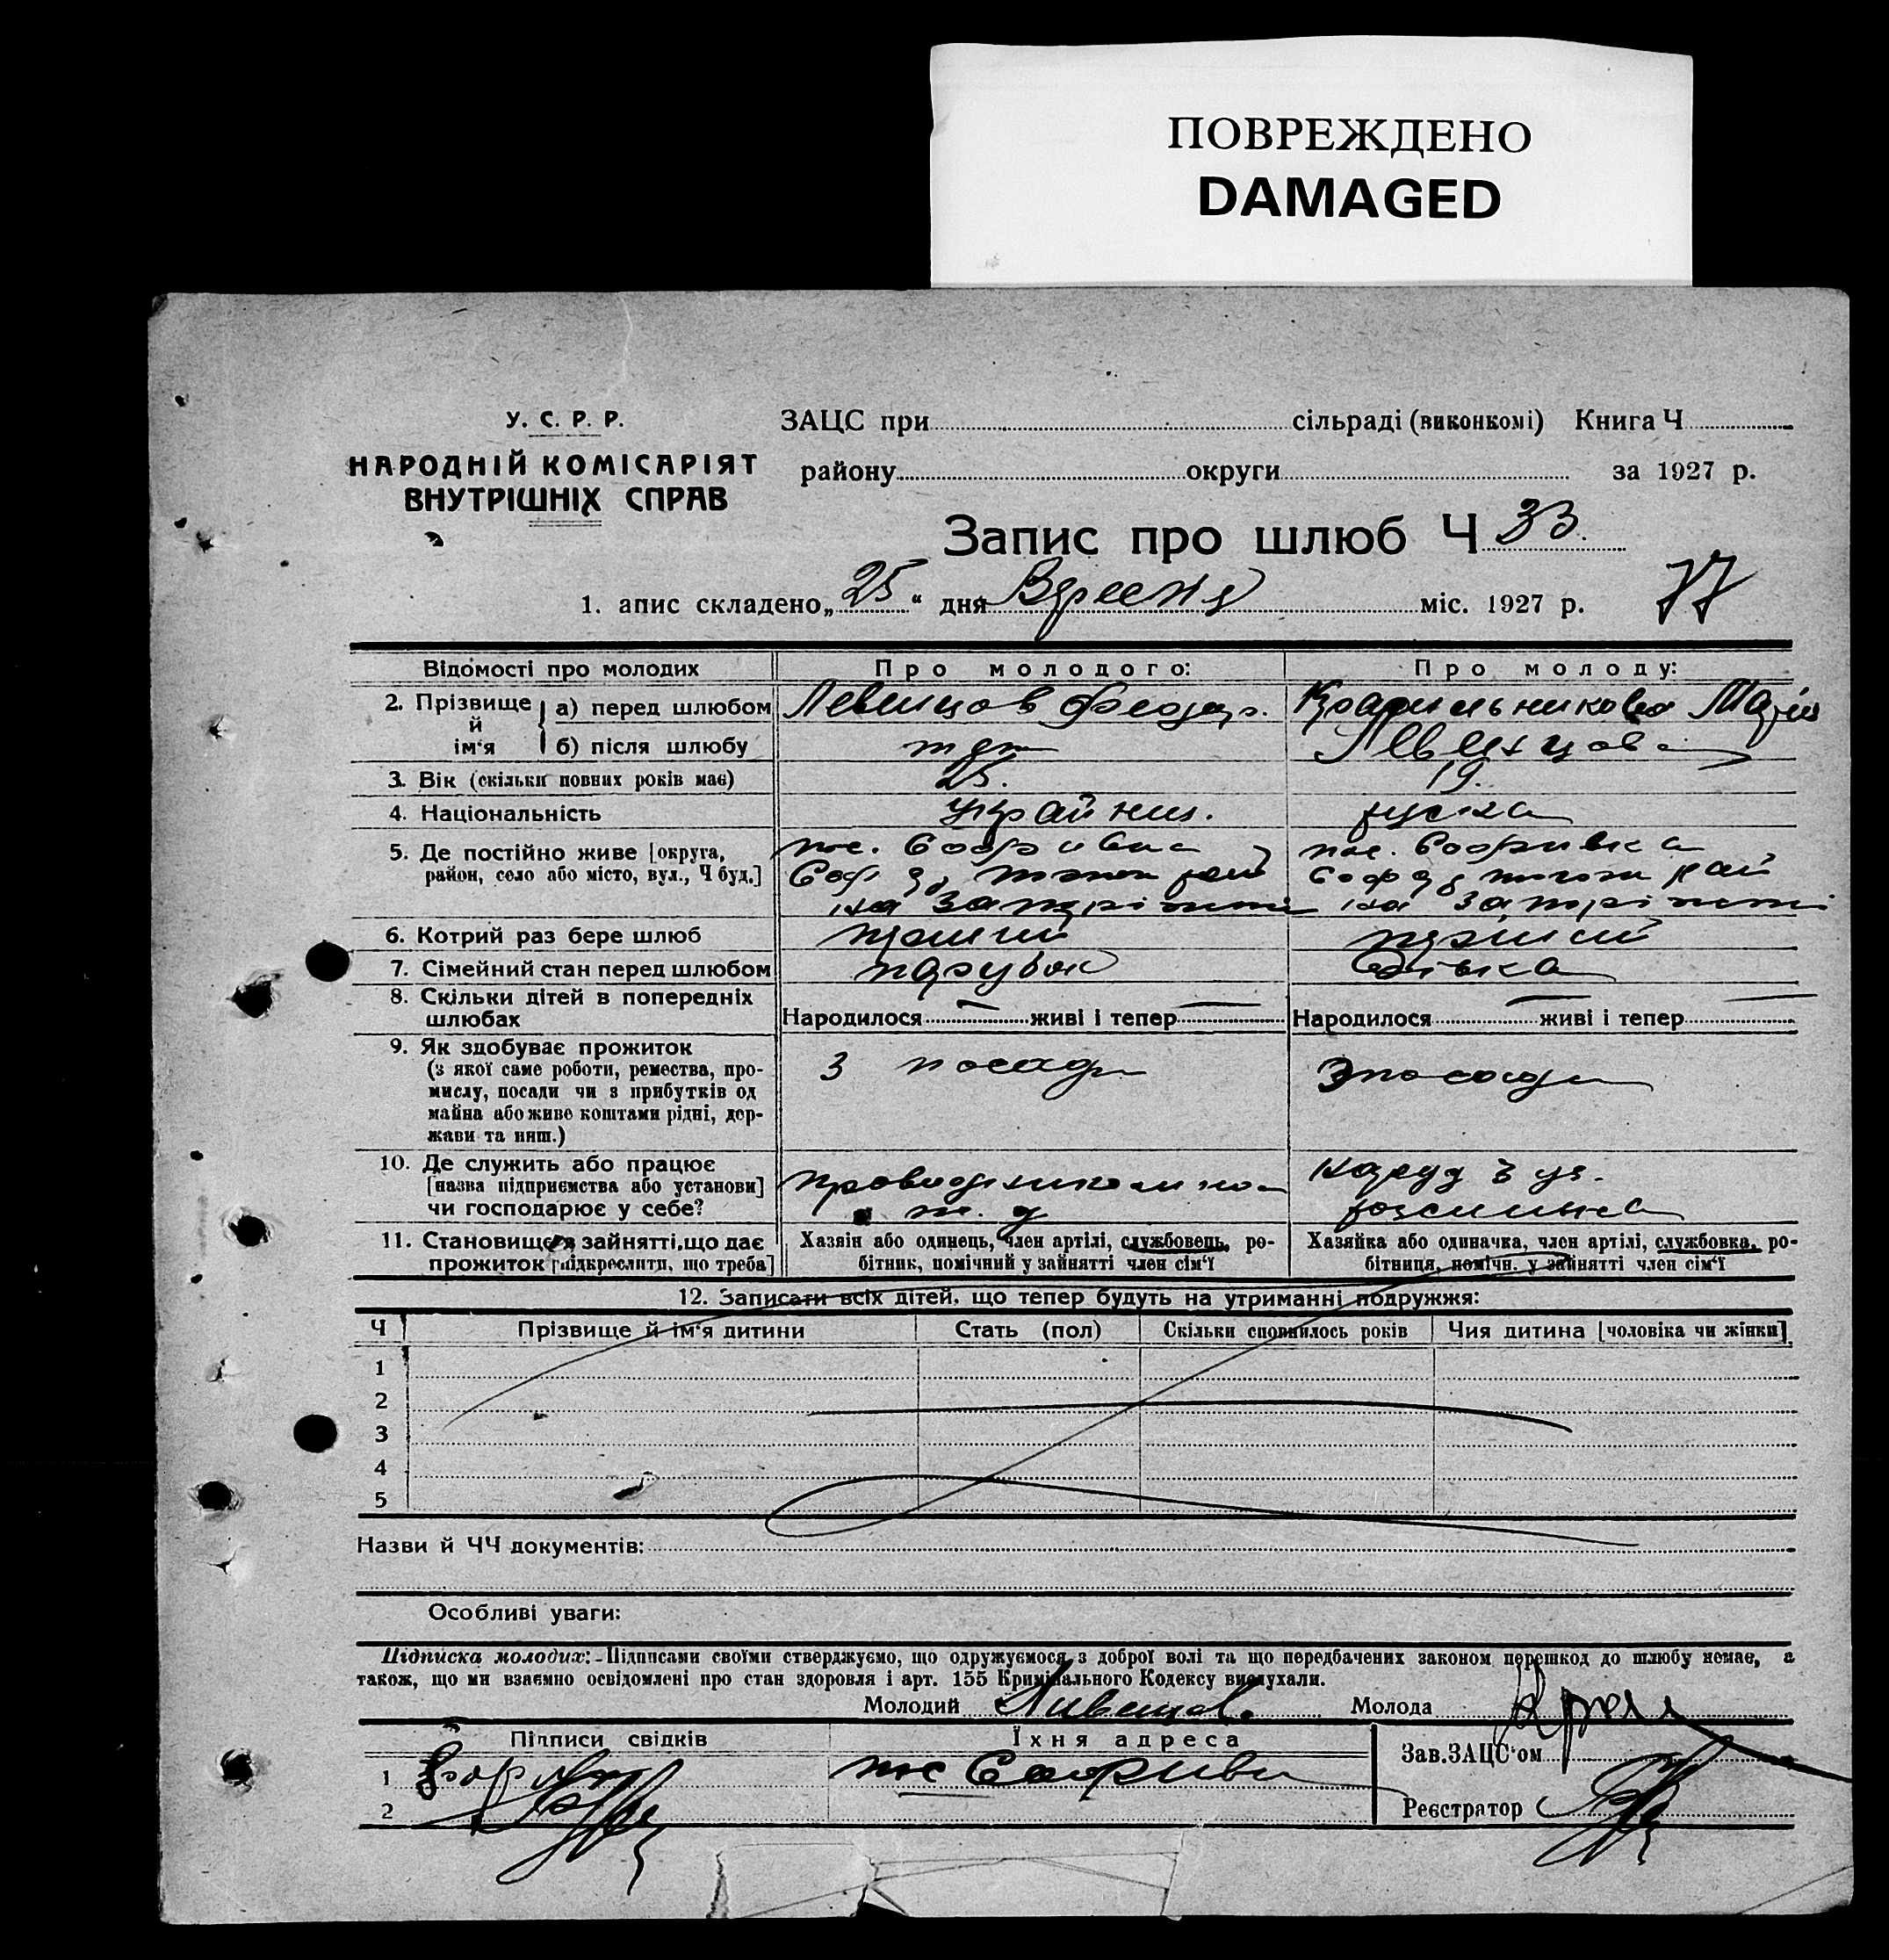 ПОВРЕЖДЕНО
DAMAGED
У. С. Р. Р.
НАРОДНІЙ КОМІСАРІЯТ
ВНУТРІШНІХ СПРАВ
ЗАЦС при сільраді (виконкомі) Книга Ч
району округи за 1927 р.
Запис про шлюб Ч 33.
1. апис складено „25“ дня Вересня міс. 1927 р. 77
Відомості про молодих Про молодого: Про молоду:
2. Прізвище й ім'я
а) перед шлюбом Левицов Феодор. Красильникова Марія
б) після шлюбу Левицова
3. Вік (скільки повних років має) 25. 19.
4. Національність Украйнец. руска
5. Де постійно живе [округа, район, село або місто, вул., Ч буд.]
пос. Софіивка пос. Софиивка
на Запоріжжі на Запоріжжі
6. Котрий раз бере шлюб перший перший
7. Сімейний стан перед шлюбом парубок дівка
8. Скільки дітей в попередніх шлюбах Народилося — живі і тепер — Народилося — живі і тепер —
9. Як здобуває прожиток
(з якої саме роботи, ремества, про-
мислу, посади чи з прибутків од
майна або живе коштами рідні, дер-
жави та инш.)
З посади З посади
10. Де служить або працює
[назва підприємства або установи]
чи господарює у себе?
11. Становище в зайнятті, що дає
прожиток [підкреслити, що треба]
Хазяін або одинець, член артілі, службовець, ро-
бітник, помічний у зайнятті член сім'ї
Хазяйка або одиначка, член артілі, службовка, ро-
бітниця, помічн. у зайнятті член сім'ї
12. Записати всіх дітей, що тепер будуть на утриманні подружжя:
Ч Прізвище й ім'я дитини Стать (пол) Скільки сповнилось років Чия дитина [чоловіка чи жінки]
1
2
3
4
5
Назви й ЧЧ документів:
Особливі уваги:
Підписка молодих: - Підписами своїми стверджуємо, що одружуємося з доброї волі та що передбачених законом перешкод до шлюбу немає, а
також, що ми взаємно освідомлені про стан здоровля і арт. 155 Кримінального Кодексу вислухали.
Молодий Молода
Підписи свідків Їхня адреса Зав.ЗАЦС'ом
1
2 Реєстратор